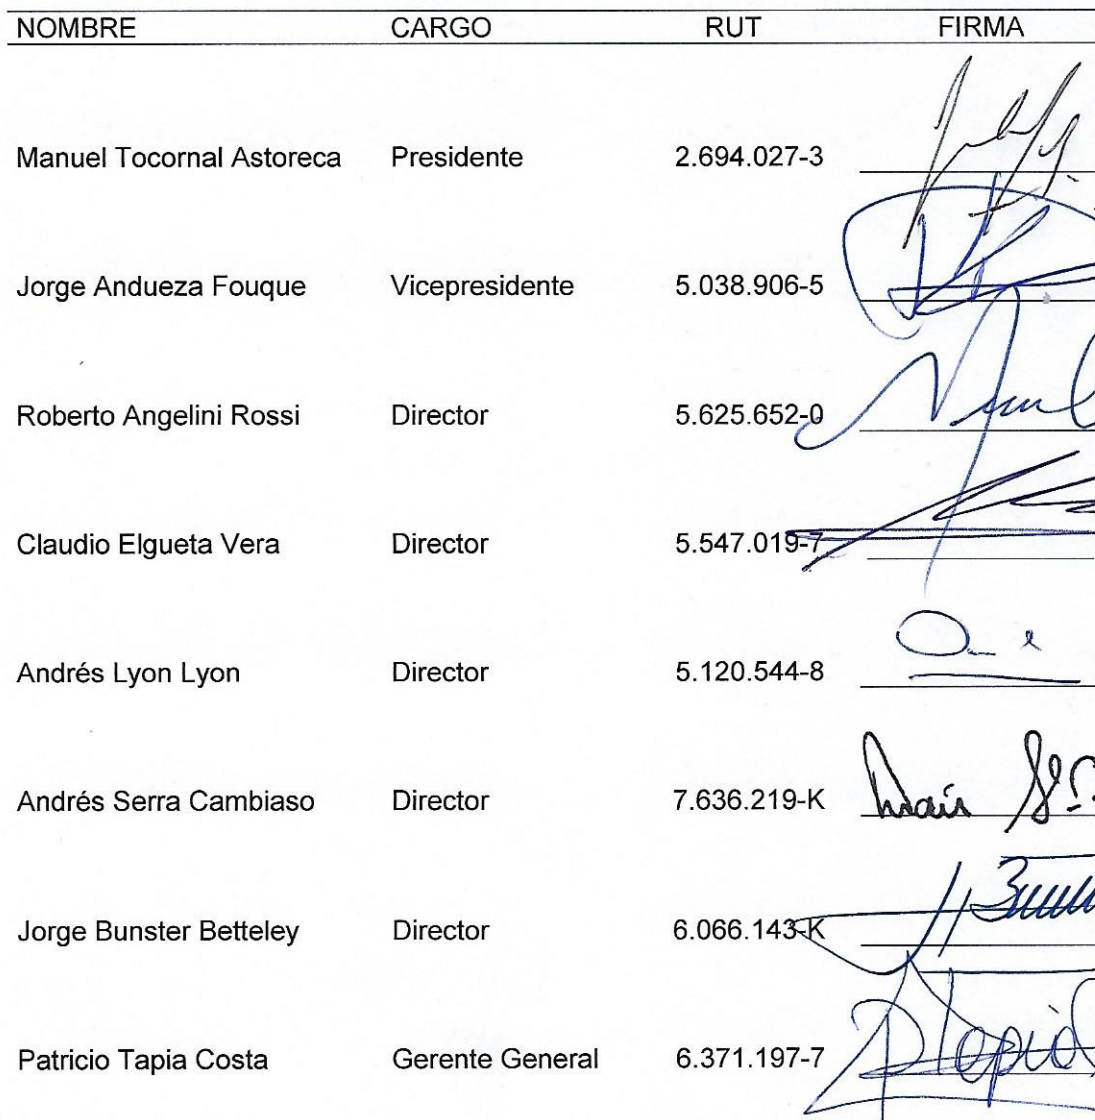 NOMBRE CARGO RUT FIRMA
Manuel Tocornal Astoreca Presidente 2.694.027-3
Jorge Andueza Fouque Vicepresidente 5.038.906-5
Roberto Angelini Rossi Director 5.625.652-0
Claudio Elgueta Vera Director 5.547.019-7
Andrés Lyon Lyon Director 5.120.544-8
Andrés Serra Cambiaso Director 7.636.219-K
Jorge Bunster Betteley Director 6.066.143-K
Patricio Tapia Costa Gerente General 6.371.197-7